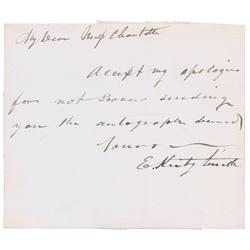 My Dear Miss Charlotte
Accept my apologies
for not sooner sending
you the autograph desired
Yours
E. Kirby Smith